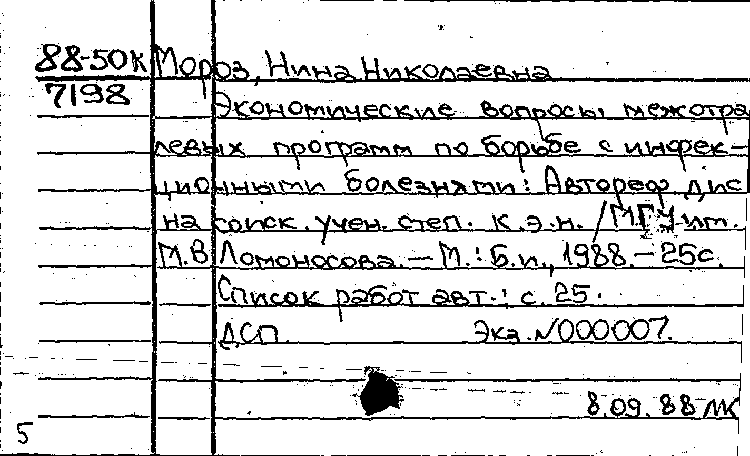 88-50К Мороз, Нина Николаевна
7198 Экономические вопросы межотра
левых программ по борьбе с инфек-
ционными болезнями: Автореф. дис
на соиск. учен. степ. к.э.н. / МГУ им.
М.В Ломоносова. — М.: Б.и., 1988. — 25с.
Список работ авт.: с. 25.
ДСП. Экз. N000007.
8.09.88 МК
5